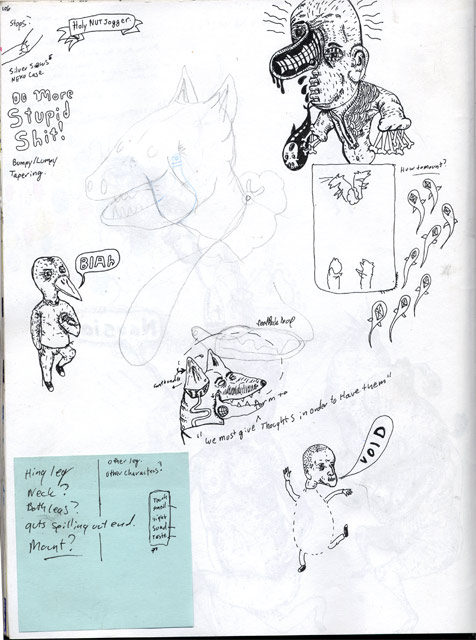 Stops?
Holy NUT Jogger.
NEKO CASE
Do More
Stupid
Shit!
Bumpy/Lumpy/
Tapering.
How to mount?
BLAH
form to
"We must give Thoughts in order to Have them"
VOID
Hing leg
Neck?
Both legs?
guts spilling out end.
Mount?
other leg.
other characters?
Touch
Smell
Sight
Sound
Taste